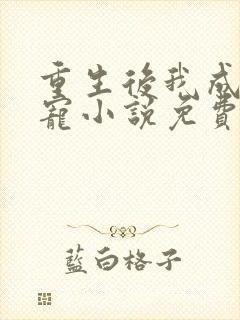 重生後我成
寵小說免費
藍白格子